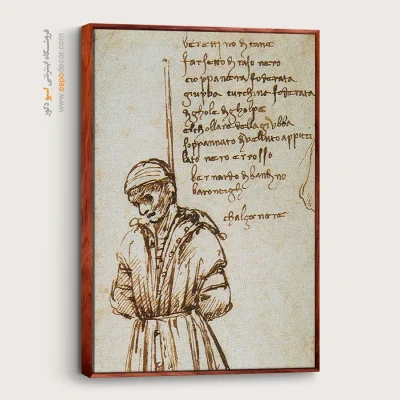 فروشگاه اینترنتی اسپو دکور
www.espodecor.com
berettino di tane
farsetto di raso nero
cioppa nera foderata
giubba turchina foderata
di ghole di gholpe
elchollare della giubba
soppannato di velluto
lato nero e rosso
bernardo di bandino
chalze nere